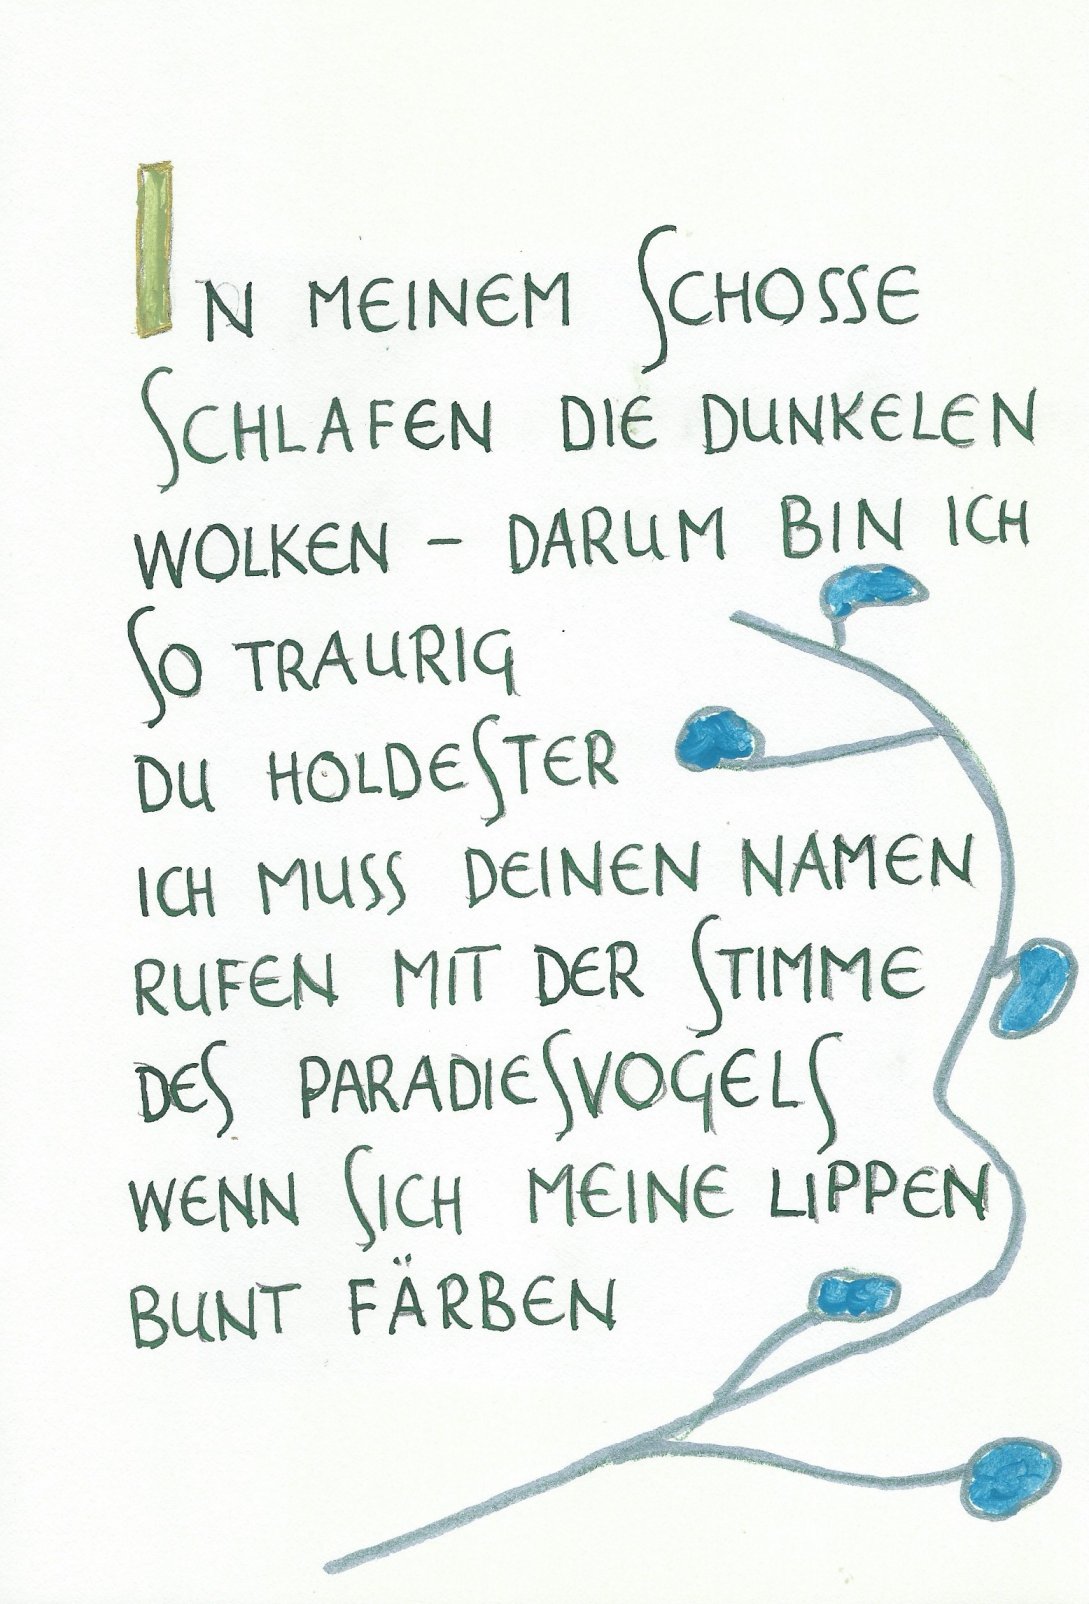 IN MEINEM SCHOSSE
SCHLAFEN DIE DUNKELEN
WOLKEN – DARUM BIN ICH
SO TRAURIG
DU HOLDESTER
ICH MUSS DEINEN NAMEN
RUFEN MIT DER STIMME
DES PARADIESVOGELS
WENN SICH MEINE LIPPEN
BUNT FÄRBEN